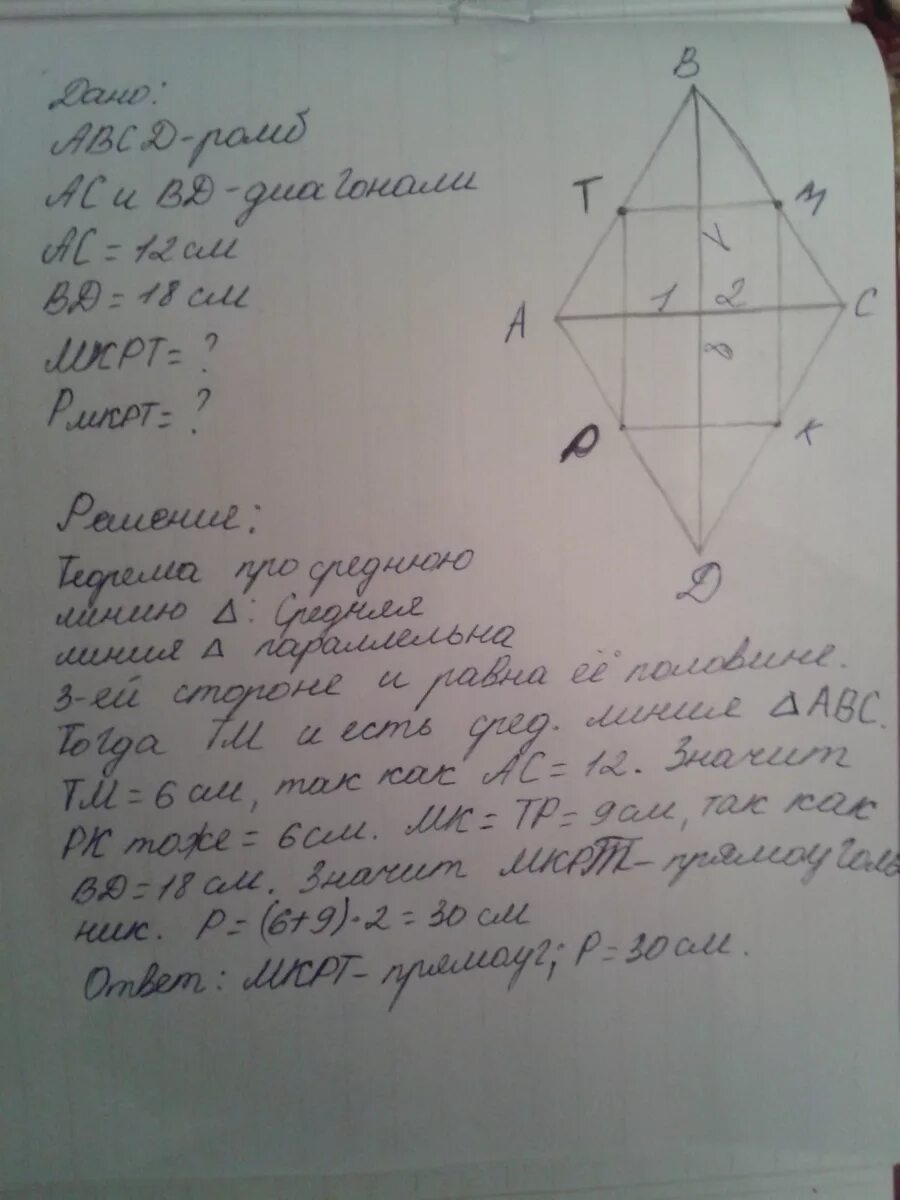 Дано:
ABCD-ромб
AC и BD-диагонали
AC = 12 см
BD = 18 см
МКРТ = ?
Pмкрт = ?
B
T
M
1 2
A
C
8
P
K
D
Решение:
Теорема про среднюю
линию Δ: Средняя
линия Δ параллельна
3-ей стороне и равна её половине.
Тогда ТМ и есть сред. линия ΔABC.
ТМ = 6 см, так как AC = 12. Значит
РК тоже = 6 см. МК = ТР = 9 см, так как
BD = 18 см. Значит МКРТ - прямоуголь
ник. P = (6+9)·2 = 30 см
Ответ: МКРТ - прямоуг; P = 30 см.